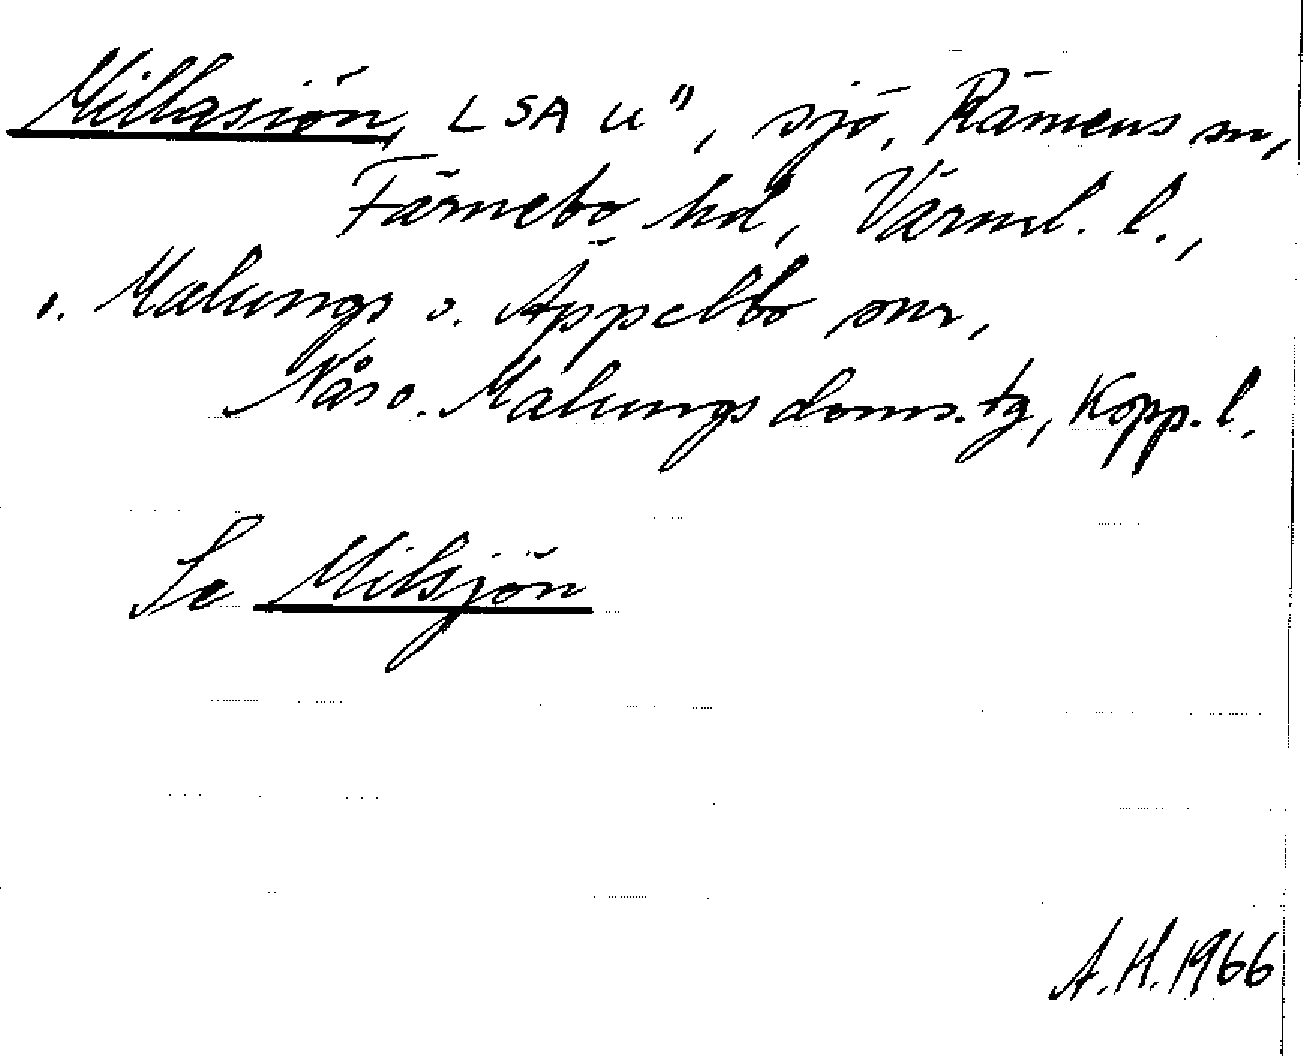 Millasiön, LSA u", sjö, Rämens sn,
Färnebo hd, Värml. l.,
o. Malungs o. Äppelbo snr,
Nås o. Malungs doms. tg, Kopp. l.
Se Milsjön
A.H. 1966